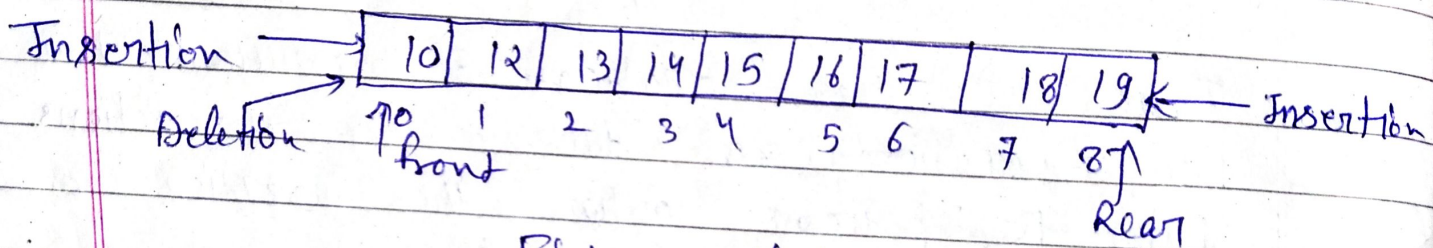 Insertion 10 12 13 14 15 16 17 18 19 Insertion
Deletion 0 1 2 3 4 5 6 7 8
front
Rear